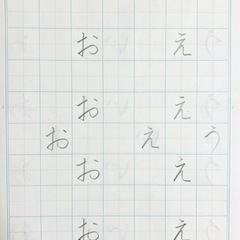 う
ええええ
え
おおおお
お